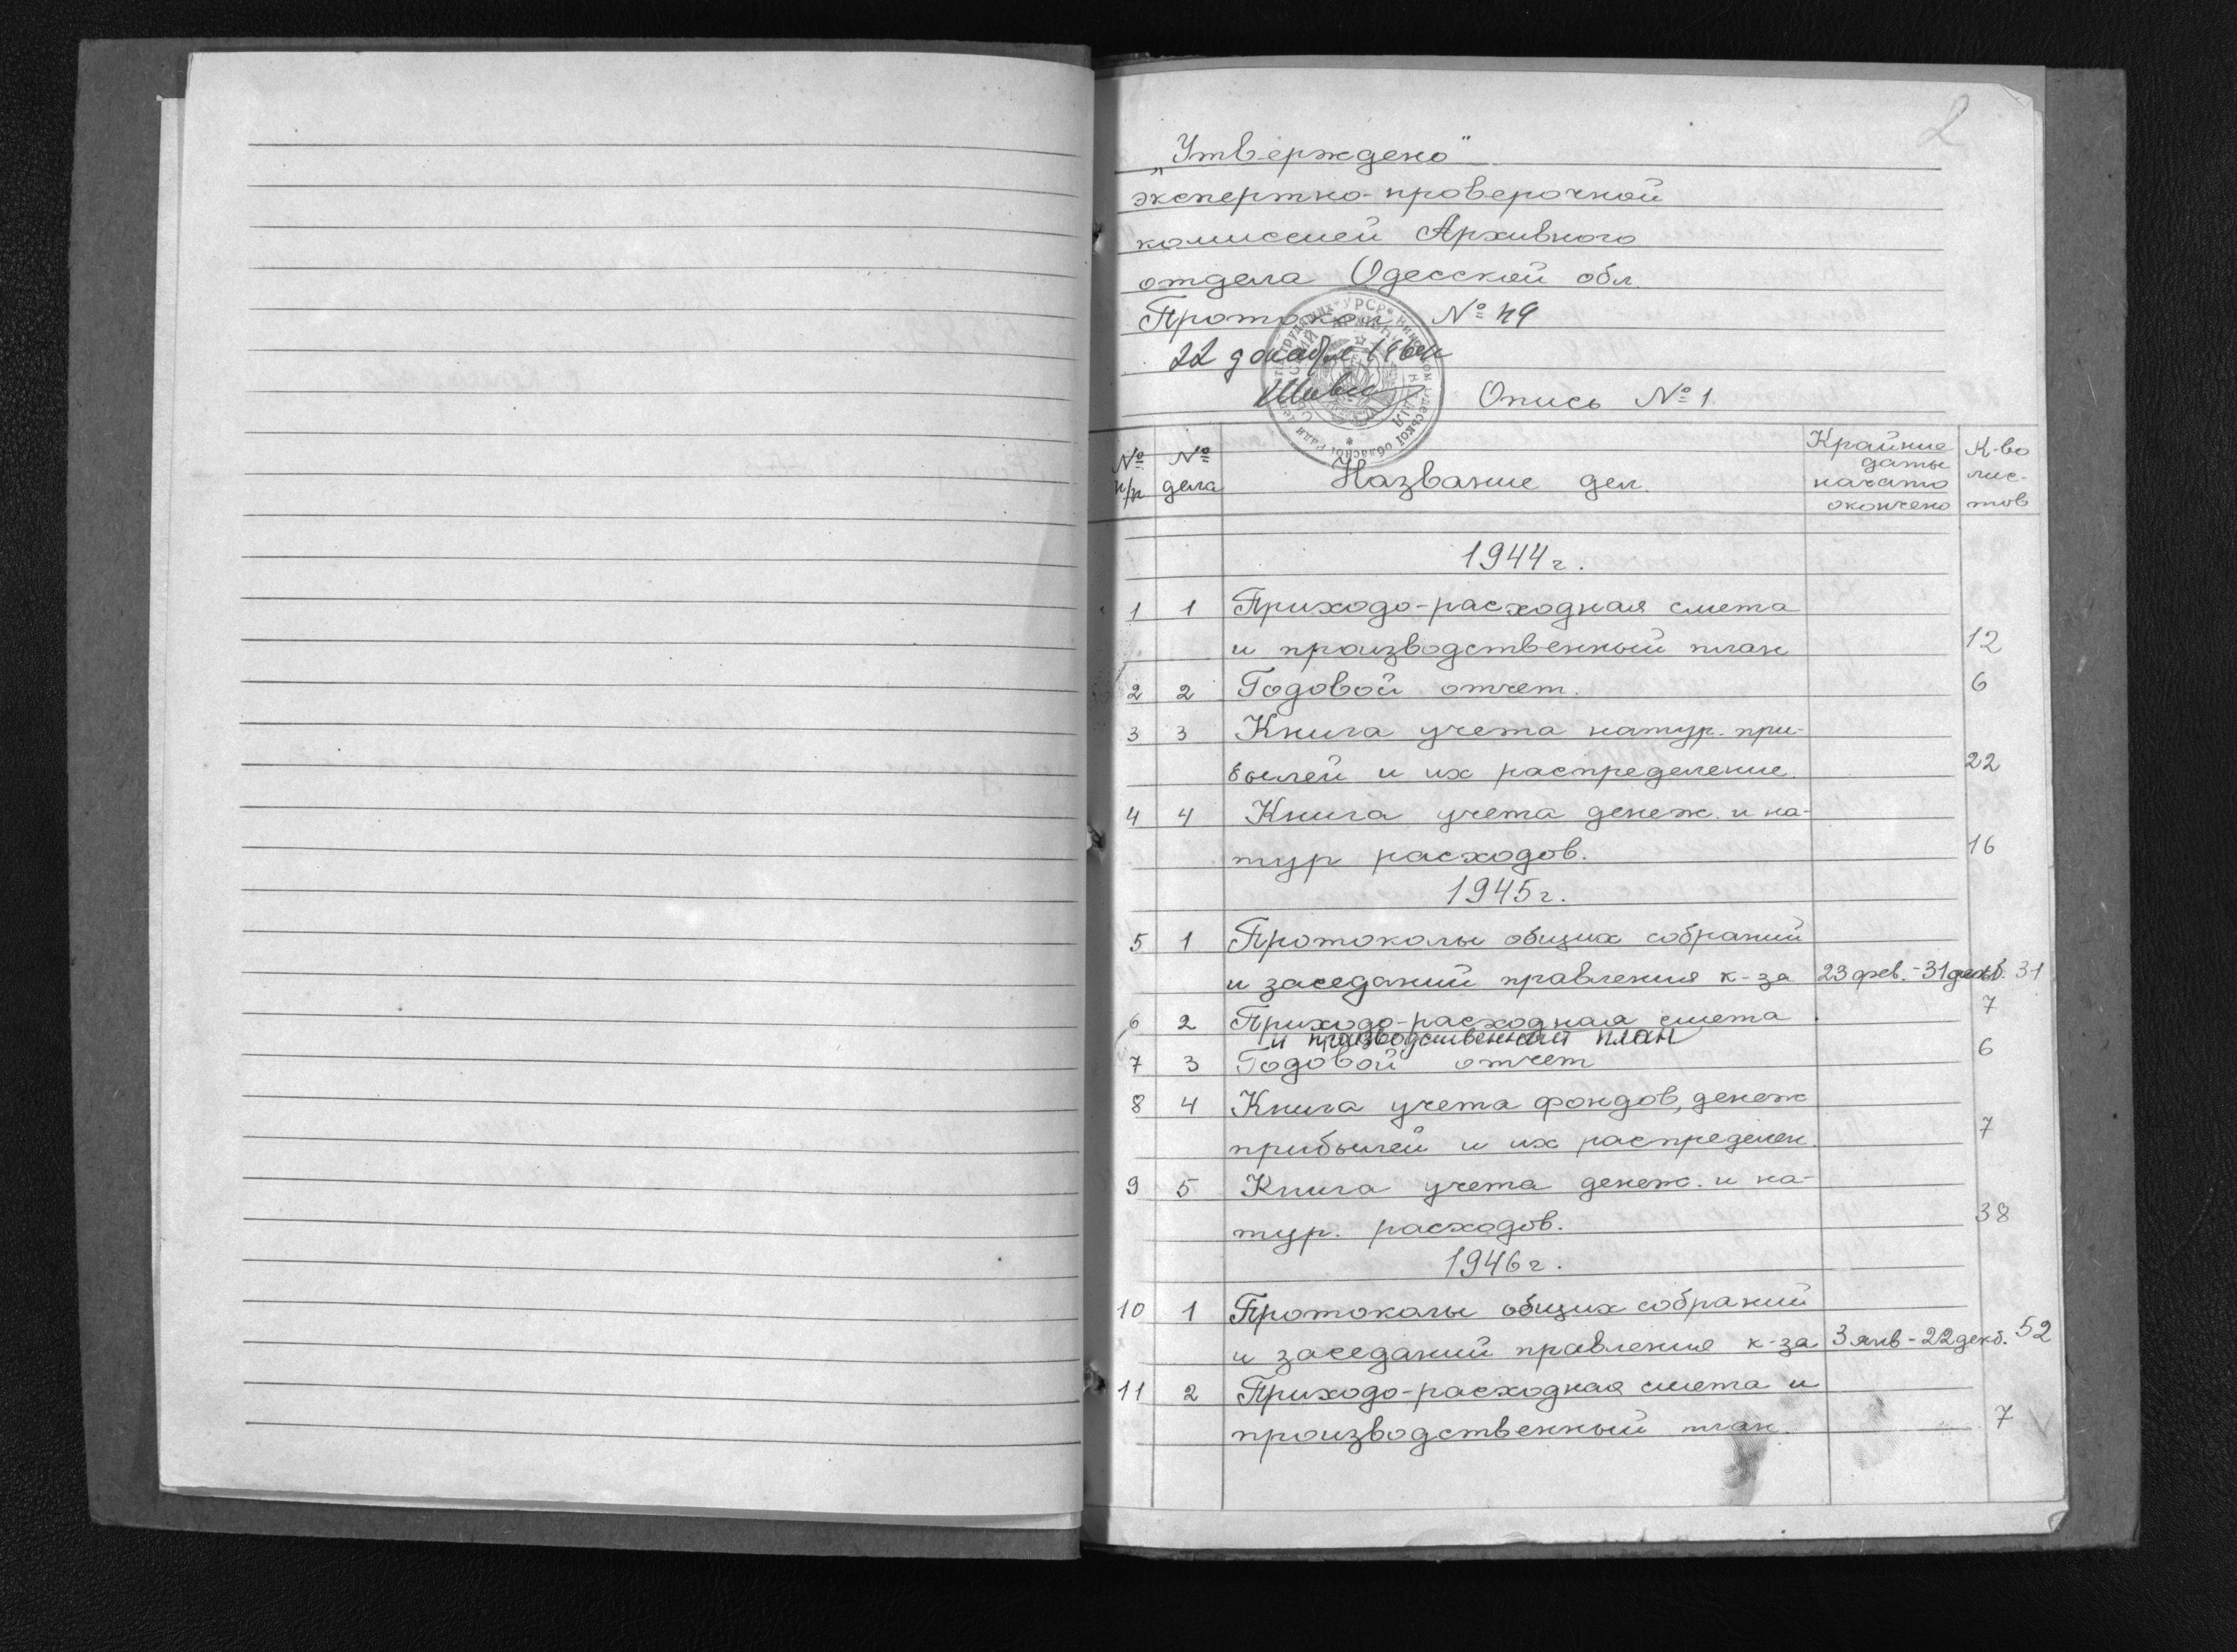 2
„Утверждено"
экспертно-проверочной
комиссией Архивного
отдела Одесской обл.
Протокол № 49
22 декабря
Опись № 1.
№ п/п
№ дела
Название дел.
Крайние даты начато окончено
К-во лис-тов
1944 г.
1 1 Приходо-расходная смета
и производственный план 12
2 2 Годовой отчет. 6
3 3 Книга учета натур. при-
былей и их распределение. 22
4 4 Книга учета денеж. и на-
тур расходов. 16
1945 г.
5 1 Протоколы общих собраний
и заседаний правления к-за 23 фев. - 31 декб. 31
6 2 Приходо-расходная смета 7
и производственный план
7 3 Годовой отчет 6
8 4 Книга учета фондов, денеж
прибылей и их распределен. 7
9 5 Книга учета денеж. и на-
тур. расходов. 38
1946 г.
10 1 Протоколы общих собраний
и заседаний правления к-за 3 янв - 22 декб. 52
11 2 Приходо-расходная смета и
производственный план. 7